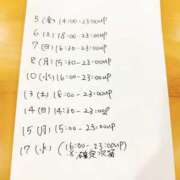 5 (金) 14:00-23:00UP
6 (土) 18:00-23:00UP
7 (日) 16:30-23:00UP
8 (月) 15:30-23:00UP
10 (水) 16:30-23:00UP
13 (土) 18:00-23:00UP
14 (日) 14:30-23:00UP
15 (月) 15:00-23:00UP
17 (水) (16:00-23:00UP
※確定次第